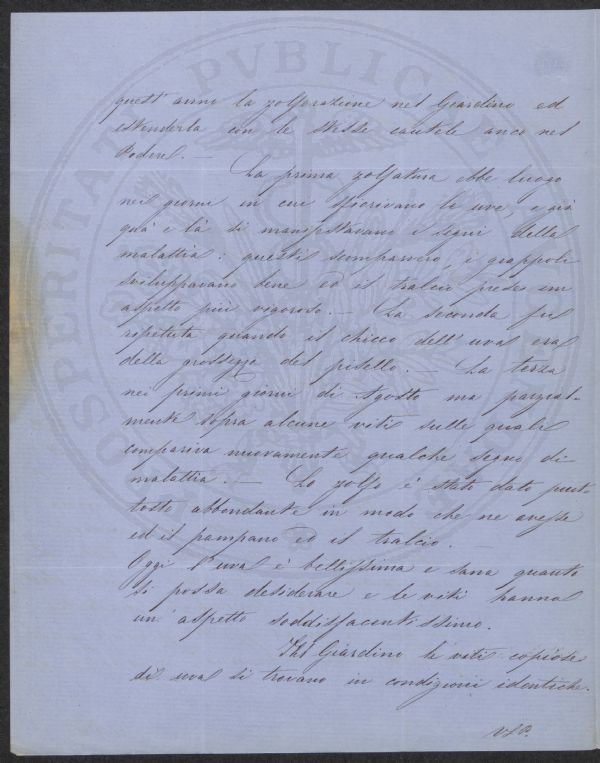 quest' anno la zolforazione nel Giardino ed
estenderla con le stesse cautele anco nel
Podere. —
La prima zolfatura ebbe luogo
nei giorni in cui sfiorivano le uve, e già
quà e là si manifestavano i segni della
malattia: questi scomparvero, i grappoli
svilupparono bene ed il tralcio prese un
aspetto più vigoroso. — La seconda fu
ripetuta quando il chicco dell' uva era
della grossezza del pisello. — La terza
nei primi giorni di Agosto ma parzial-
mente sopra alcune viti sulle quali
compariva nuovamente qualche segno di
malattia. — Lo zolfo è stato dato piut
tosto abbondante in modo che ne avesse
ed il pampano ed il tralcio. —
Oggi l'uva è bellissima e sana quanto
si possa desiderare e le viti hanno
un' aspetto soddisfacentissimo.
Giardino le viti copiose
di uva si trovano in condizioni identiche.
PVBLICAE
PROSPERITATI